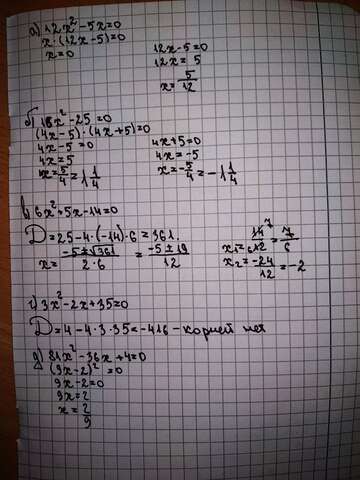 а) 12x² - 5x = 0
x · (12x - 5) = 0
x = 0
12x - 5 = 0
12x = 5
x = 5/12
б) 18x² - 25 = 0
(4x - 5) · (4x + 5) = 0
4x - 5 = 0
4x = 5
x = 5/4 = 1 1/4
4x + 5 = 0
4x = -5
x = -5/4 = -1 1/4
в) 6x² + 5x - 14 = 0
D = 25 - 4 · (-14) · 6 = 361.
x = (-5 ± √361)/(2 · 6) = (-5 ± 19)/12
x₁ = 14/12 = 7/6
x₂ = -24/12 = -2
г) 3x² - 2x + 35 = 0
D = 4 - 4 · 3 · 35 = -416 - корней нет
д) 81x² - 36x + 4 = 0
(9x - 2)² = 0
9x - 2 = 0
9x = 2
x = 2/9